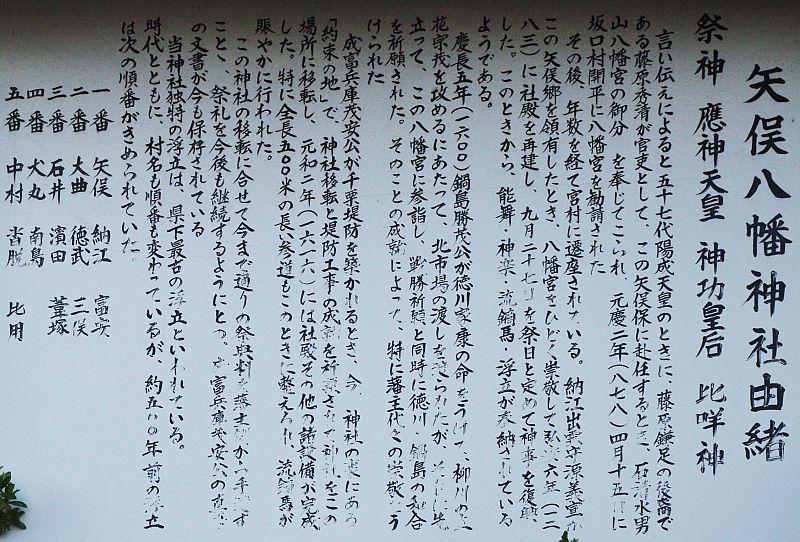 矢俣八幡神社由緒
祭神 應神天皇 神功皇后 比咩神
言い伝えによると五十七代陽成天皇のときに、藤原鎌足の後裔で
ある藤原秀清が官吏として、この矢俣保に赴任するとき、石清水男
山八幡宮の御分 を奉じてこられ、元慶二年(八七八)四月十五日に
坂口村開平に八幡宮を勧請された
その後、年数を経て宮村に遷座されている。納江出雲守源義宣が
この矢俣郷を領有したとき、八幡宮をひどく崇敬して弘安六年(一二
八三)に社殿を再建し、九月二十七日を祭日と定めて神事を復興
した。このときから、能舞・神楽・流鏑馬・浮立が奉納されている
ようである。
慶長五年(一六〇〇)鍋島勝茂公が徳川家康の命をうけて、柳川の立
花宗茂を攻めるにあたって、北市場の渡しを渡られたが、それに先
立って、この八幡宮に参詣し、戦勝祈願と同時に徳川、鍋島の和合
を祈願された。そのことの成就によって、特に藩主代々の崇敬をう
けられた
成富兵庫茂安公が千栗堤防を築かれるとき、今、神社の裏にある
「約束の地」で、神社移転と堤防工事の成就を祈願されて神社をこの
場所に移転し、元和二年(一六一六)には社殿その他の諸設備が完成
した。特に全長五〇〇米の長い参道もこのときに整えられ、流鏑馬が
賑やかに行われた。
この神社の移転に合せて今まで通りの祭典料を藩主 から手渡す
こと、祭礼を今後も継続するようにとの、成富兵庫茂安公の直筆
の文書が今も保存されている
当神社独特の浮立は、県下最古の浮立といわれている。
時代とともに、村名も順番も変わっているが、約五百年前の浮立
は次の順番がきめられていた。
一番 矢俣 納江 富安
二番 大曲 徳武 三俣
三番 石井 濱田 𦿸塚
四番 犬丸 南島
五番 中村 沓脱 比用